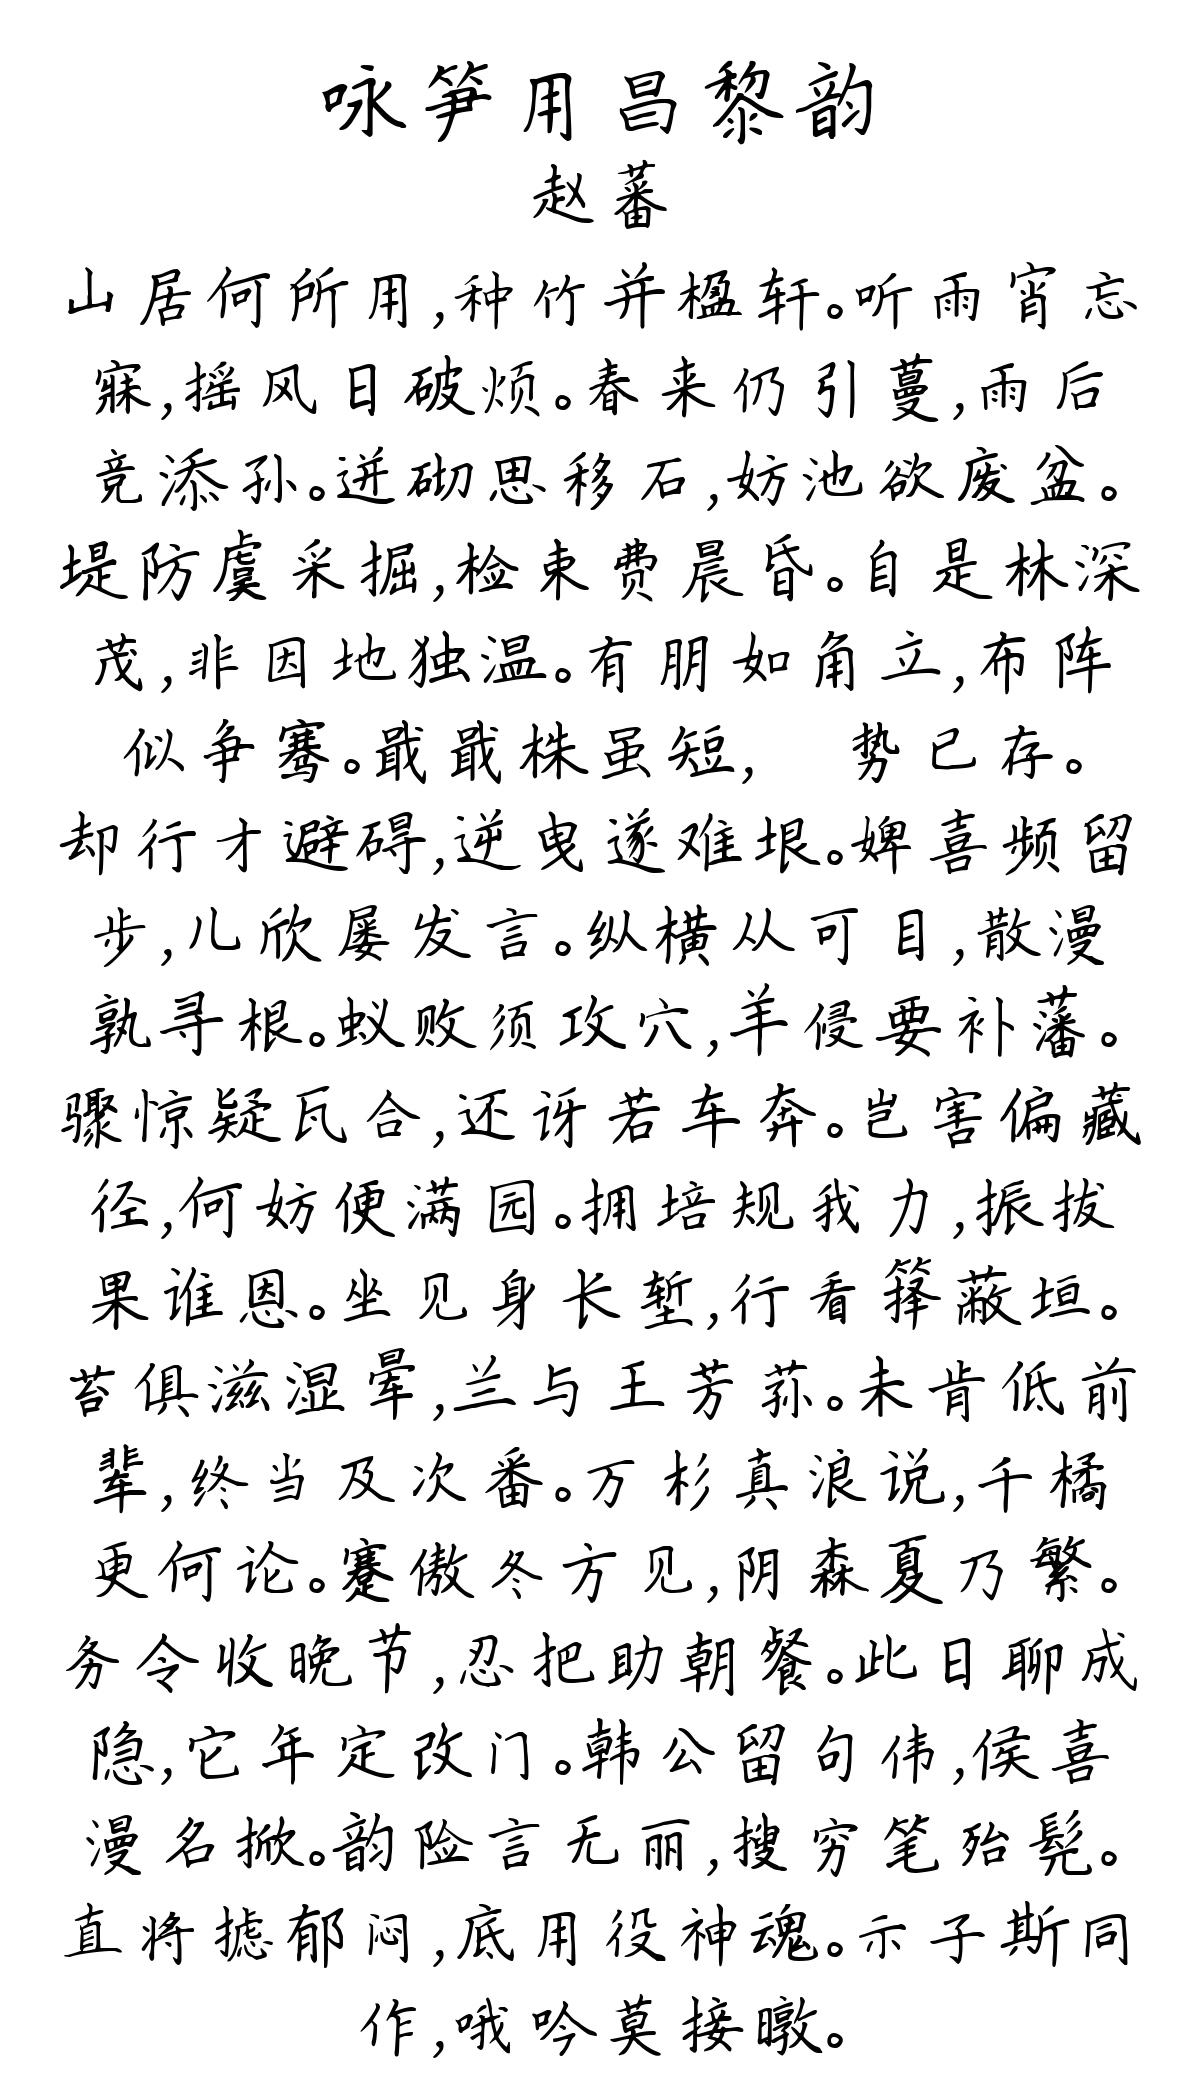 咏笋用昌黎韵
赵蕃
山居何所用,种竹并楹轩。听雨宵忘
寐,摇风日破烦。春来仍引蔓,雨后
竞添孙。迸砌思移石,妨池欲废盆。
堤防虞采掘,检束费晨昏。自是林深
茂,非因地独温。有朋如角立,布阵
似争骞。戢戢株虽短, 势已存。
却行才避碍,逆曳遂难垠。婢喜频留
步,儿欣屡发言。纵横从可目,散漫
孰寻根。蚁败须攻穴,羊侵要补藩。
骤惊疑瓦合,还讶若车奔。岂害偏藏
径,何妨便满园。拥培规我力,振拔
果谁恩。坐见身长堑,行看箨蔽垣。
苔俱滋湿晕,兰与王芳荪。未肯低前
辈,终当及次番。万杉真浪说,千橘
更何论。蹇傲冬方见,阴森夏乃繁。
务令收晚节,忍把助朝餐。此日聊成
隐,它年定改门。韩公留句伟,侯喜
漫名掀。韵险言无丽,搜穷笔殆髡。
直将摅郁闷,底用役神魂。示子斯同
作,哦吟莫接暾。